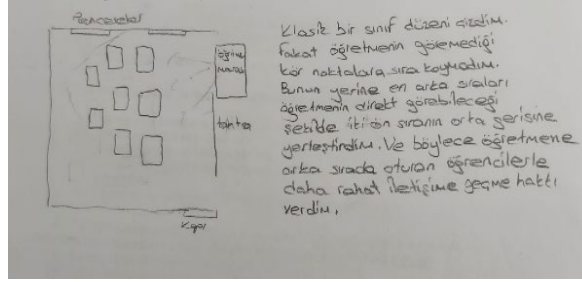 Pencereler
öğretmen
masası
tahta
Kapı
Klasik bir sınıf düzeni çizdim.
Fakat öğretmenin göremediği
kör noktalara sıra koymadım.
Bunun yerine en arka sıraları
öğretmenin direkt görebileceği
şekilde iki ön sıranın orta gerisine
yerleştirdim. Ve böylece öğretmene
arka sırada oturan öğrencilerle
daha rahat iletişime geçme hakkı
verdim.